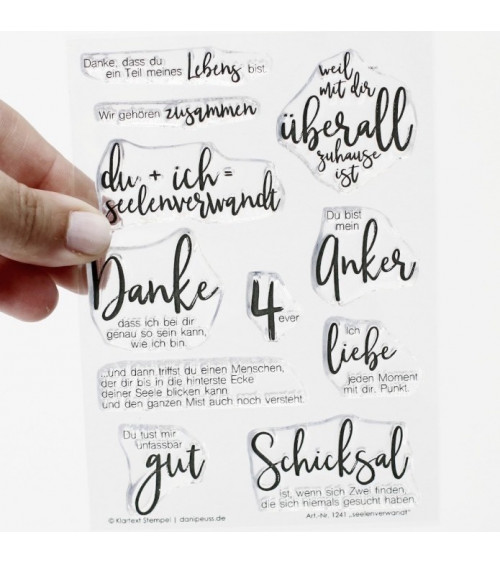 Danke, dass du
ein Teil meines Lebens bist.
Wir gehören zusammen
du + ich =
seelenverwandt
weil
mit dir
überall
zuhause
ist
Danke
dass ich bei dir
genau so sein kann,
wie ich bin.
4
ever
Du bist
mein
Anker
Ich
liebe
jeden Moment
mit dir. Punkt.
...und dann triffst du einen Menschen,
der dir bis in die hinterste Ecke
deiner Seele blicken kann
und den ganzen Mist auch noch versteht.
Du tust mir
unfassbar
gut
Schicksal
ist, wenn sich Zwei finden,
die sich niemals gesucht haben.
© Klartext Stempel | danipeuss.de
Art.-Nr. 1241 „seelenverwandt"